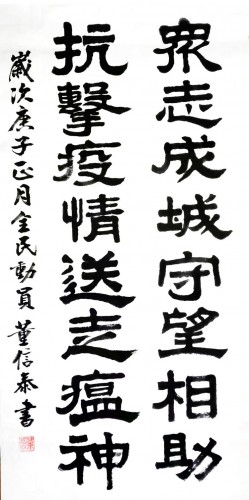 眾志成城守望相助
抗擊疫情送走瘟神
歲次庚子正月全民動員 董信泰書